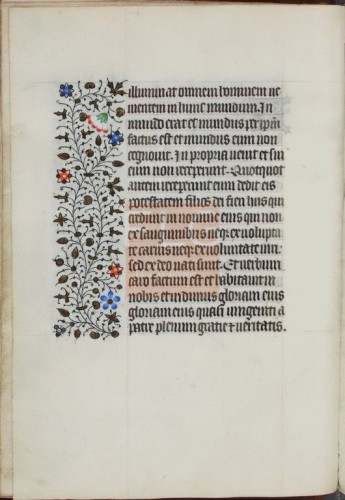 illuminat omnem hominem ue
nientem in hunc mundum. In
mundo erat et mundus per ipm
factus est et mundus eum non
cognouit. In propria uenit et sui
eum non receperunt. Quotquot
autem receperunt eum dedit eis
potestatem filios dei fieri huis qui
credunt in nomine eius qui non
ex sanguinibus neqz ex uolunta
te carnis neqz ex uoluntate uiri.
sed ex deo nati sunt. Et uerbum
caro factum est et habitauit in
nobis et uidimus gloriam eius
gloriam eius quasi unigeniti a
patre plenum gratie ⁊ ueritatis.